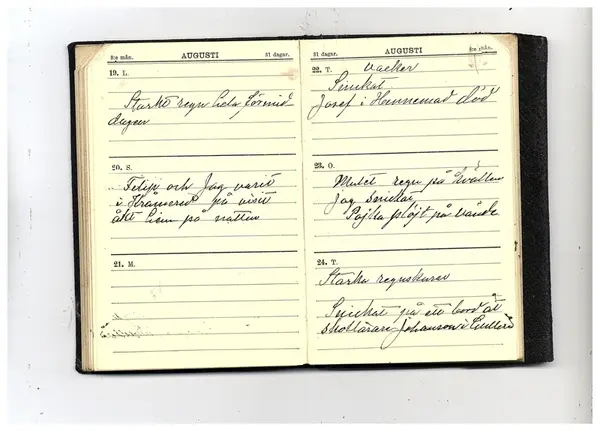 8:e mån.
AUGUSTI
31 dagar.
19. L.
Starkt regn hela förmid
dagen
20. S.
Felix och Jag varit
i på visit
åkt hem på natten
21. M.
31 dagar.
AUGUSTI
8:e mån.
22. T. vacker
Snickat
Josef i Hennemad död
23. O.
Mulet regn på kvällen
jag snickat
plöjt på
24. T.
Starka regnskurar
Snickat på ett bord åt
skollärare Johanson i